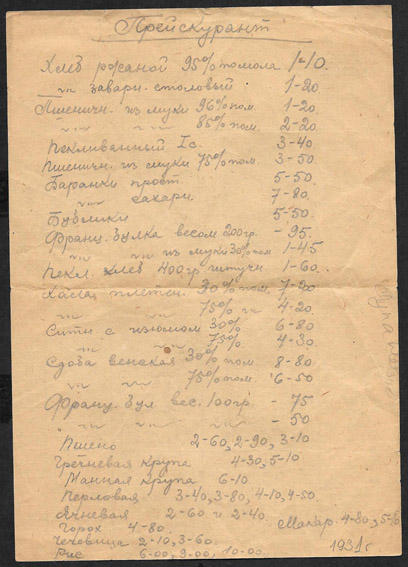 Прейскурант
Хлеб ржаной 95% помола 1-10.
〃 заварн. столовый 1-20
Пшеничн. из муки 96% пом. 1-20.
〃 〃 85% пом. 2-20
Пеклеванный Iс. 3-40
Пшеничн. из муки 75% пом. 3-50
Баранки прост. 5-50
〃 сахарн. 7-80.
Бублики 5-50.
Франц. булка весом 200гр. - 95.
〃 〃 из муки 30% пом 1-45
Пекл. хлеб 400гр штучн 1-60.
Халы плетен. 30% пом. 7-20
〃 75% 〃 4-20.
Ситн с изюмом 30% 6-80
〃 75% 4-30
Сдоба венская 30% пом 8-80
〃 〃 75% пом. 6-50
Франц. бул. вес. 100гр. - 75
〃 〃 〃 - 50
Пшено 2-60, 2-90, 3-10
Гречневая крупа 4-30, 5-10
Манная крупа 6-10
Перловая 3-40, 3-80, 4-10, 4-50.
Ячневая 2-60 и 2-40.
Горох 4-80. Макар. 4-80,
Чечевица 2-10, 3-60.
Рис 6-00, 9-00, 10-00.
1931г